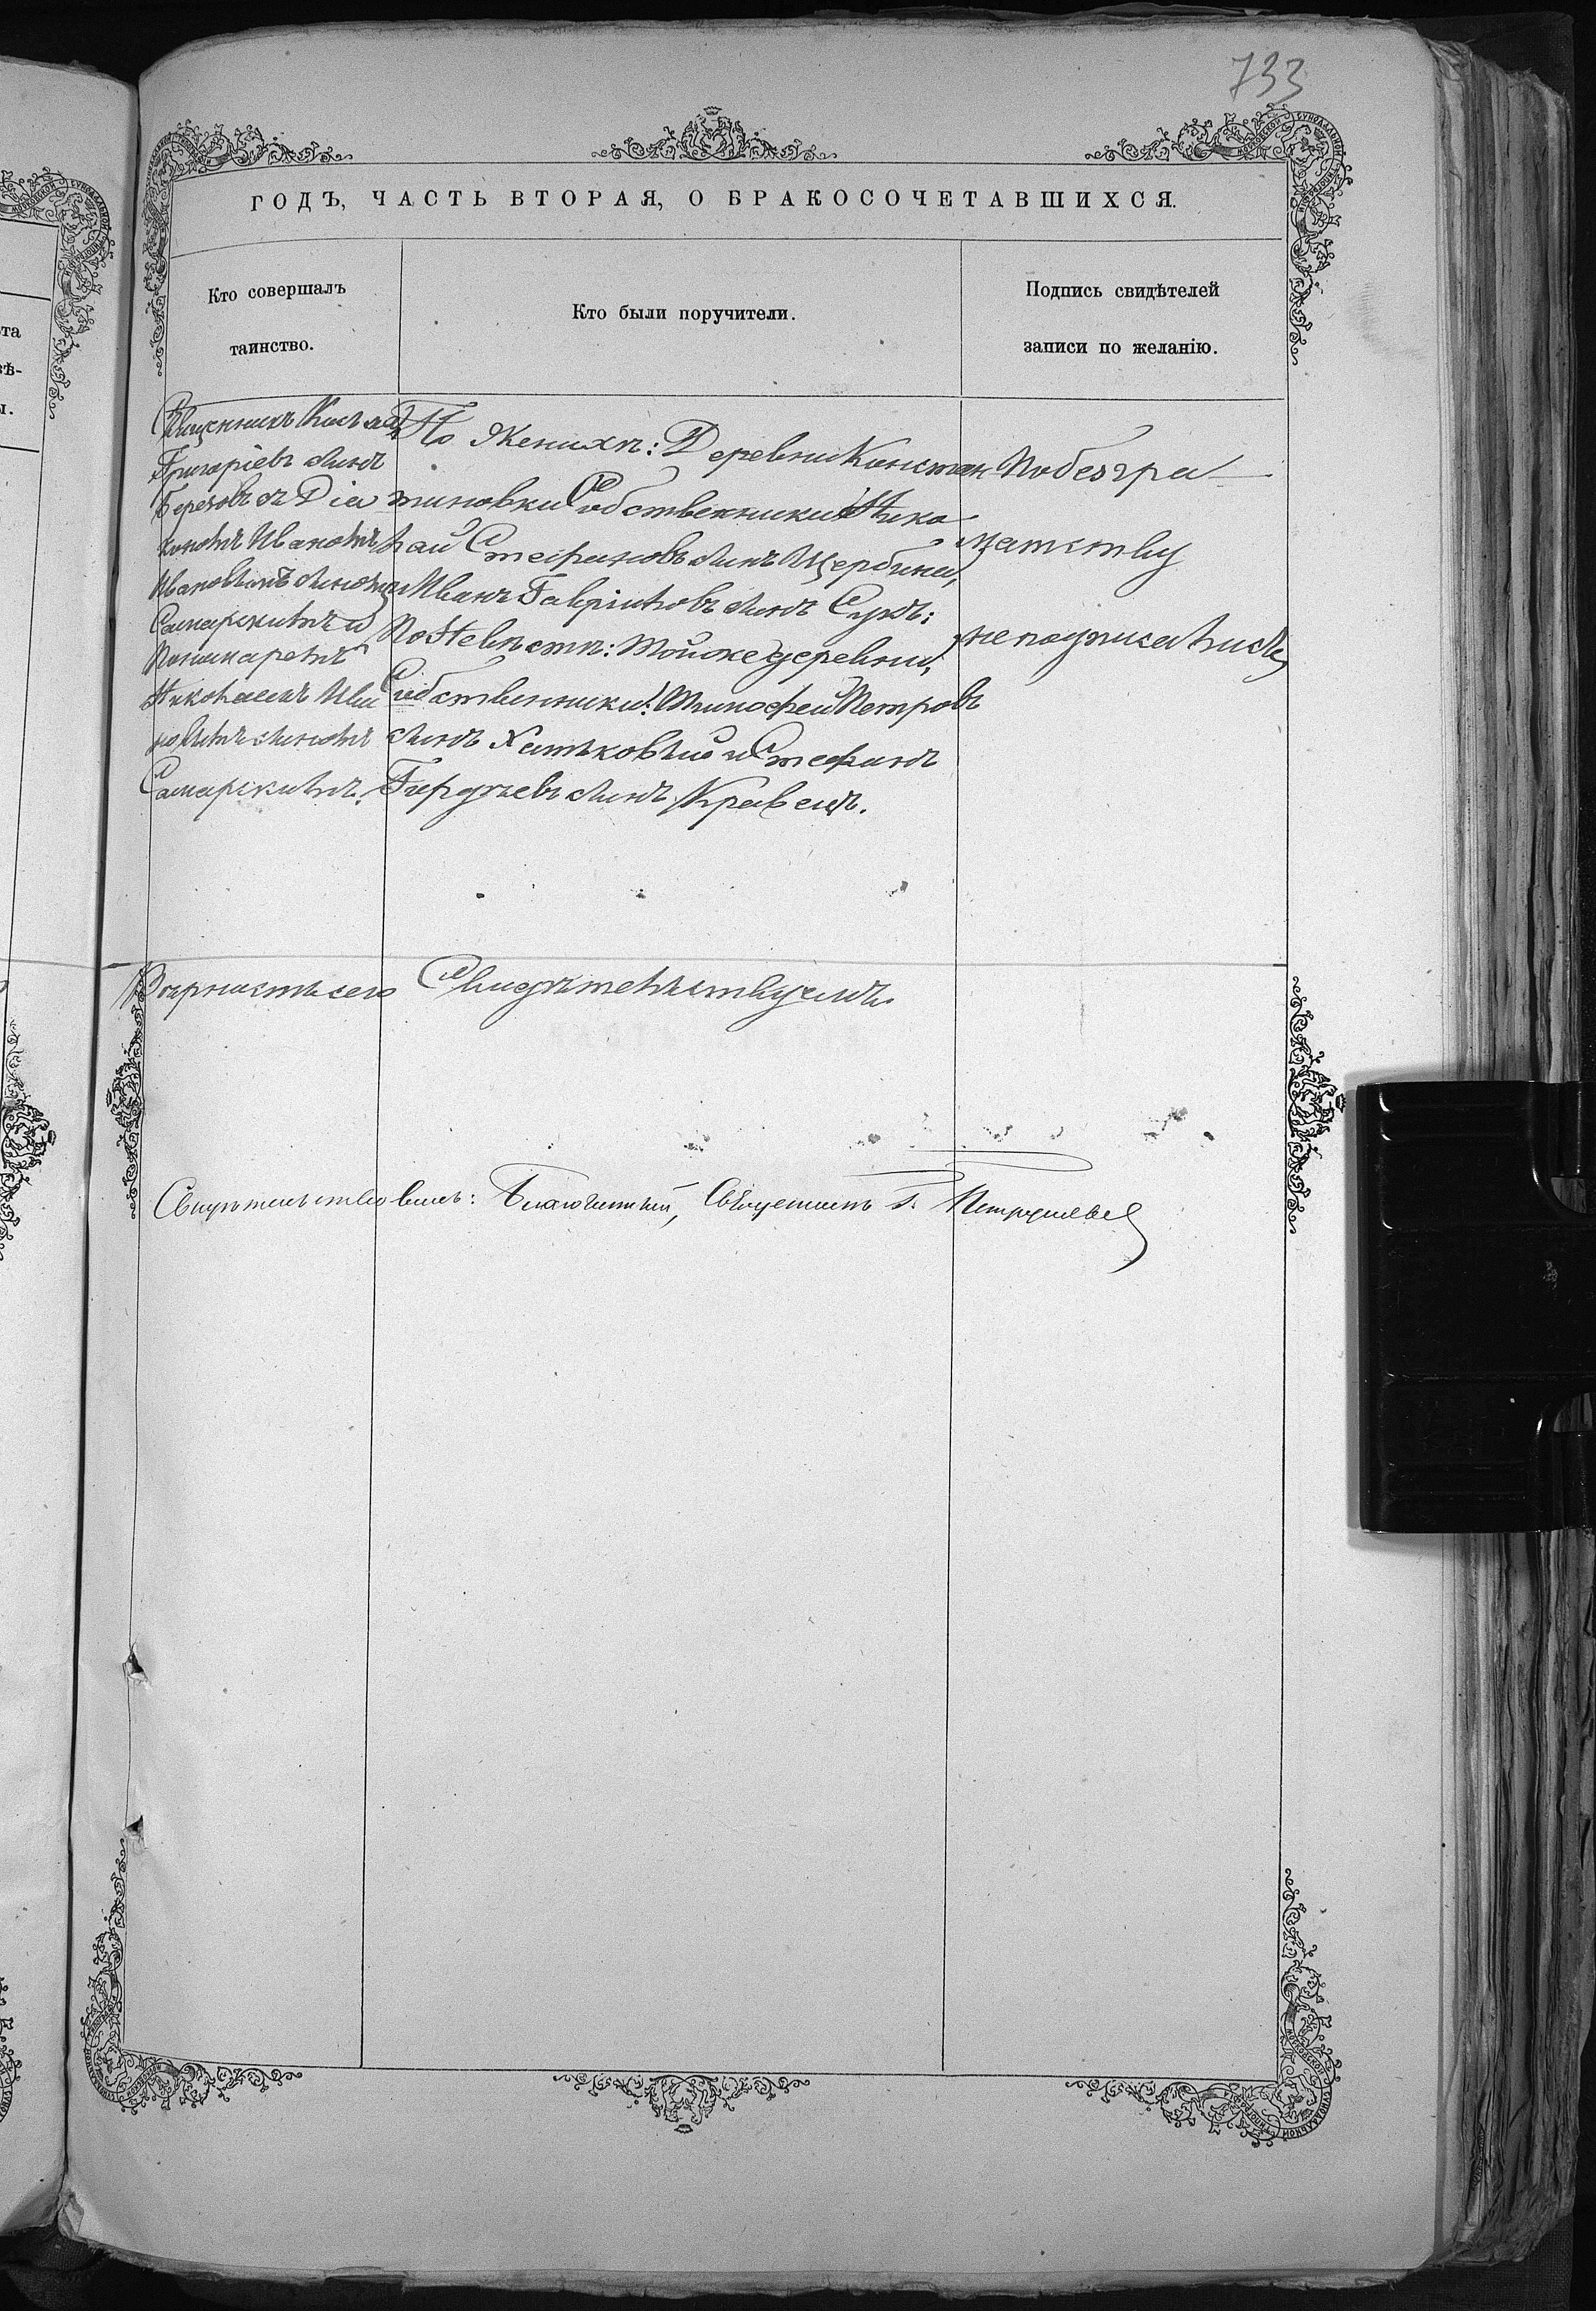 733
ГОДЪ, ЧАСТЬ ВТОРАЯ, О БРАКОСОЧЕТАВШИХСЯ.
Кто совершалъ
таинство.
Кто были поручители.
Подпись свидѣтелей
записи по желанію.
Священникъ
Григоріевъ сынъ
съ Діа
кономъ Иваномъ
Ивановымъ сыномъ
Самарскимъ и
Пономаремъ
Николаемъ Ива
новымъ сыномъ
Самарскимъ.
По Женихѣ: Деревни Констан
тиновки Собственники Нико
лай Стефановъ сынъ Щербина,
Иванъ Гавріиловъ сынъ Сукъ;
По Невѣстѣ: Той же деревни,
Собственники: Тимофей Петровъ
сынъ Хатьковый и Стефанъ
сынъ Кравецъ.
По безгра-
матству
не подписались
Вѣрность сего Свидѣтельствуемъ
Свидѣтельствовалъ: Благочинный, Священникъ Г. Петрушевъ